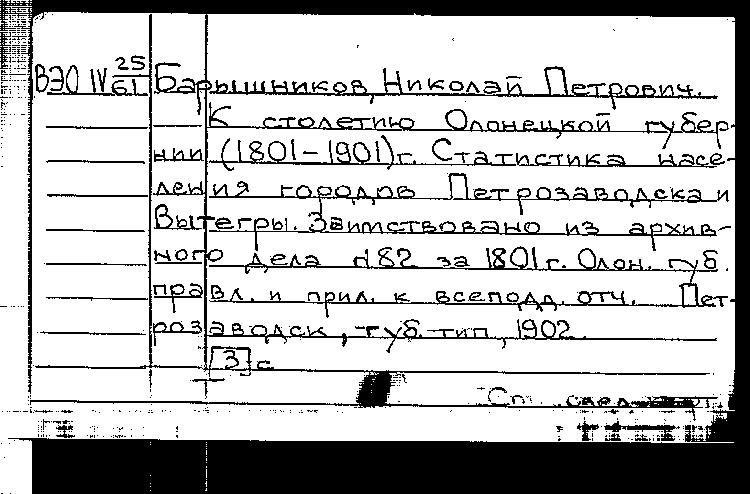 ВЭО IV 25/61 Барышников, Николай Петрович.
К столетию Олонецкой губер-
нии (1801-1901)г. Статистика насе-
ления городов Петрозаводска и
Вытегры. Заимствовано из архив-
ного дела №82 за 1801 г. Олон. губ.
правл. и прил. к всеподд. отч. Пет-
розаводск, губ. тип, 1902.
[3] с
См. след.